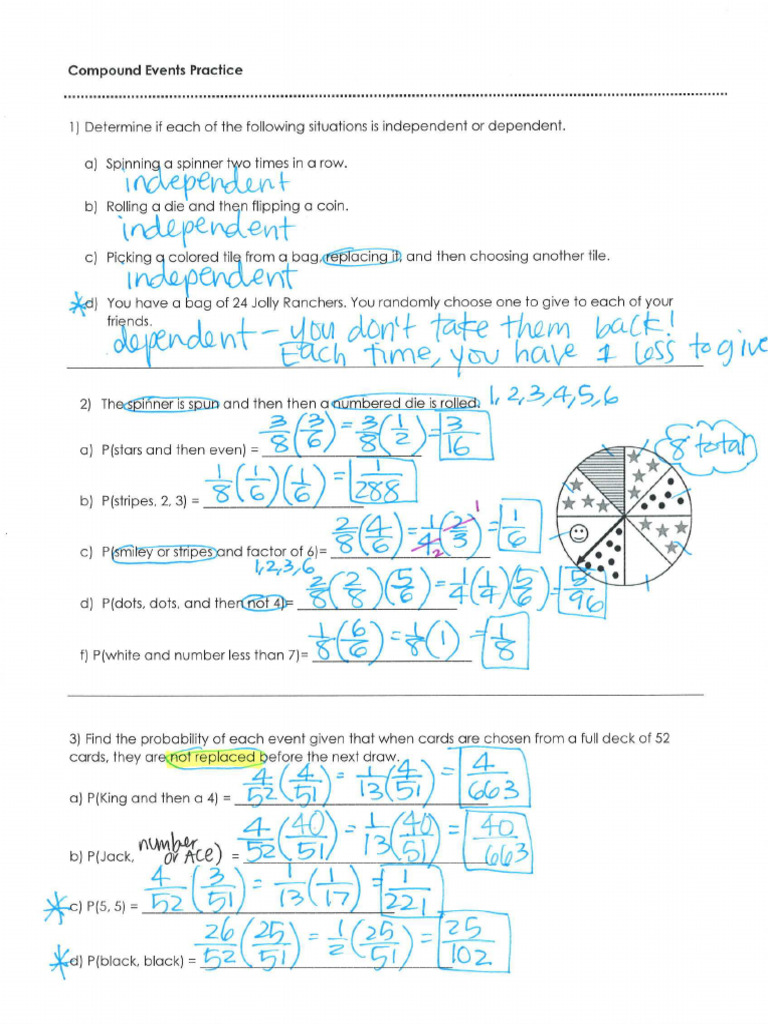 Compound Events Practice
1) Determine if each of the following situations is independent or dependent.
a) Spinning a spinner two times in a row.
independent
b) Rolling a die and then flipping a coin.
independent
c) Picking a colored tile from a bag, replacing it, and then choosing another tile.
independent
*d) You have a bag of 24 Jolly Ranchers. You randomly choose one to give to each of your
friends.
dependent - you don't take them back!
Each time, you have 1 less to give
2) The spinner is spun and then then a numbered die is rolled. 1, 2, 3, 4, 5, 6
8 total
a) P(stars and then even) = 3/8 (3/6) = 3/8 (1/2) = 3/16
b) P(stripes, 2, 3) = 1/8 (1/6)(1/6) = 1/288
c) P(smiley or stripes and factor of 6)= 2/8 (4/6) = 1/4 (2/3) = 1/6
1 2
1,2,3,6
d) P(dots, dots, and then not 4)= 2/8 (2/8)(5/6) = 1/4 (1/4)(5/6) = 5/96
f) P(white and number less than 7)= 1/8 (6/6) = 1/8 (1) = 1/8
3) Find the probability of each event given that when cards are chosen from a full deck of 52
cards, they are not replaced before the next draw.
a) P(King and then a 4) = 4/52 (4/51) = 1/13 (4/51) = 4/663
b) P(Jack, number or ACE) = 4/52 (40/51) = 1/13 (40/51) = 40/663
*c) P(5, 5) = 4/52 (3/51) = 1/13 (1/17) = 1/221
*d) P(black, black) = 26/52 (25/51) = 1/2 (25/51) = 25/102